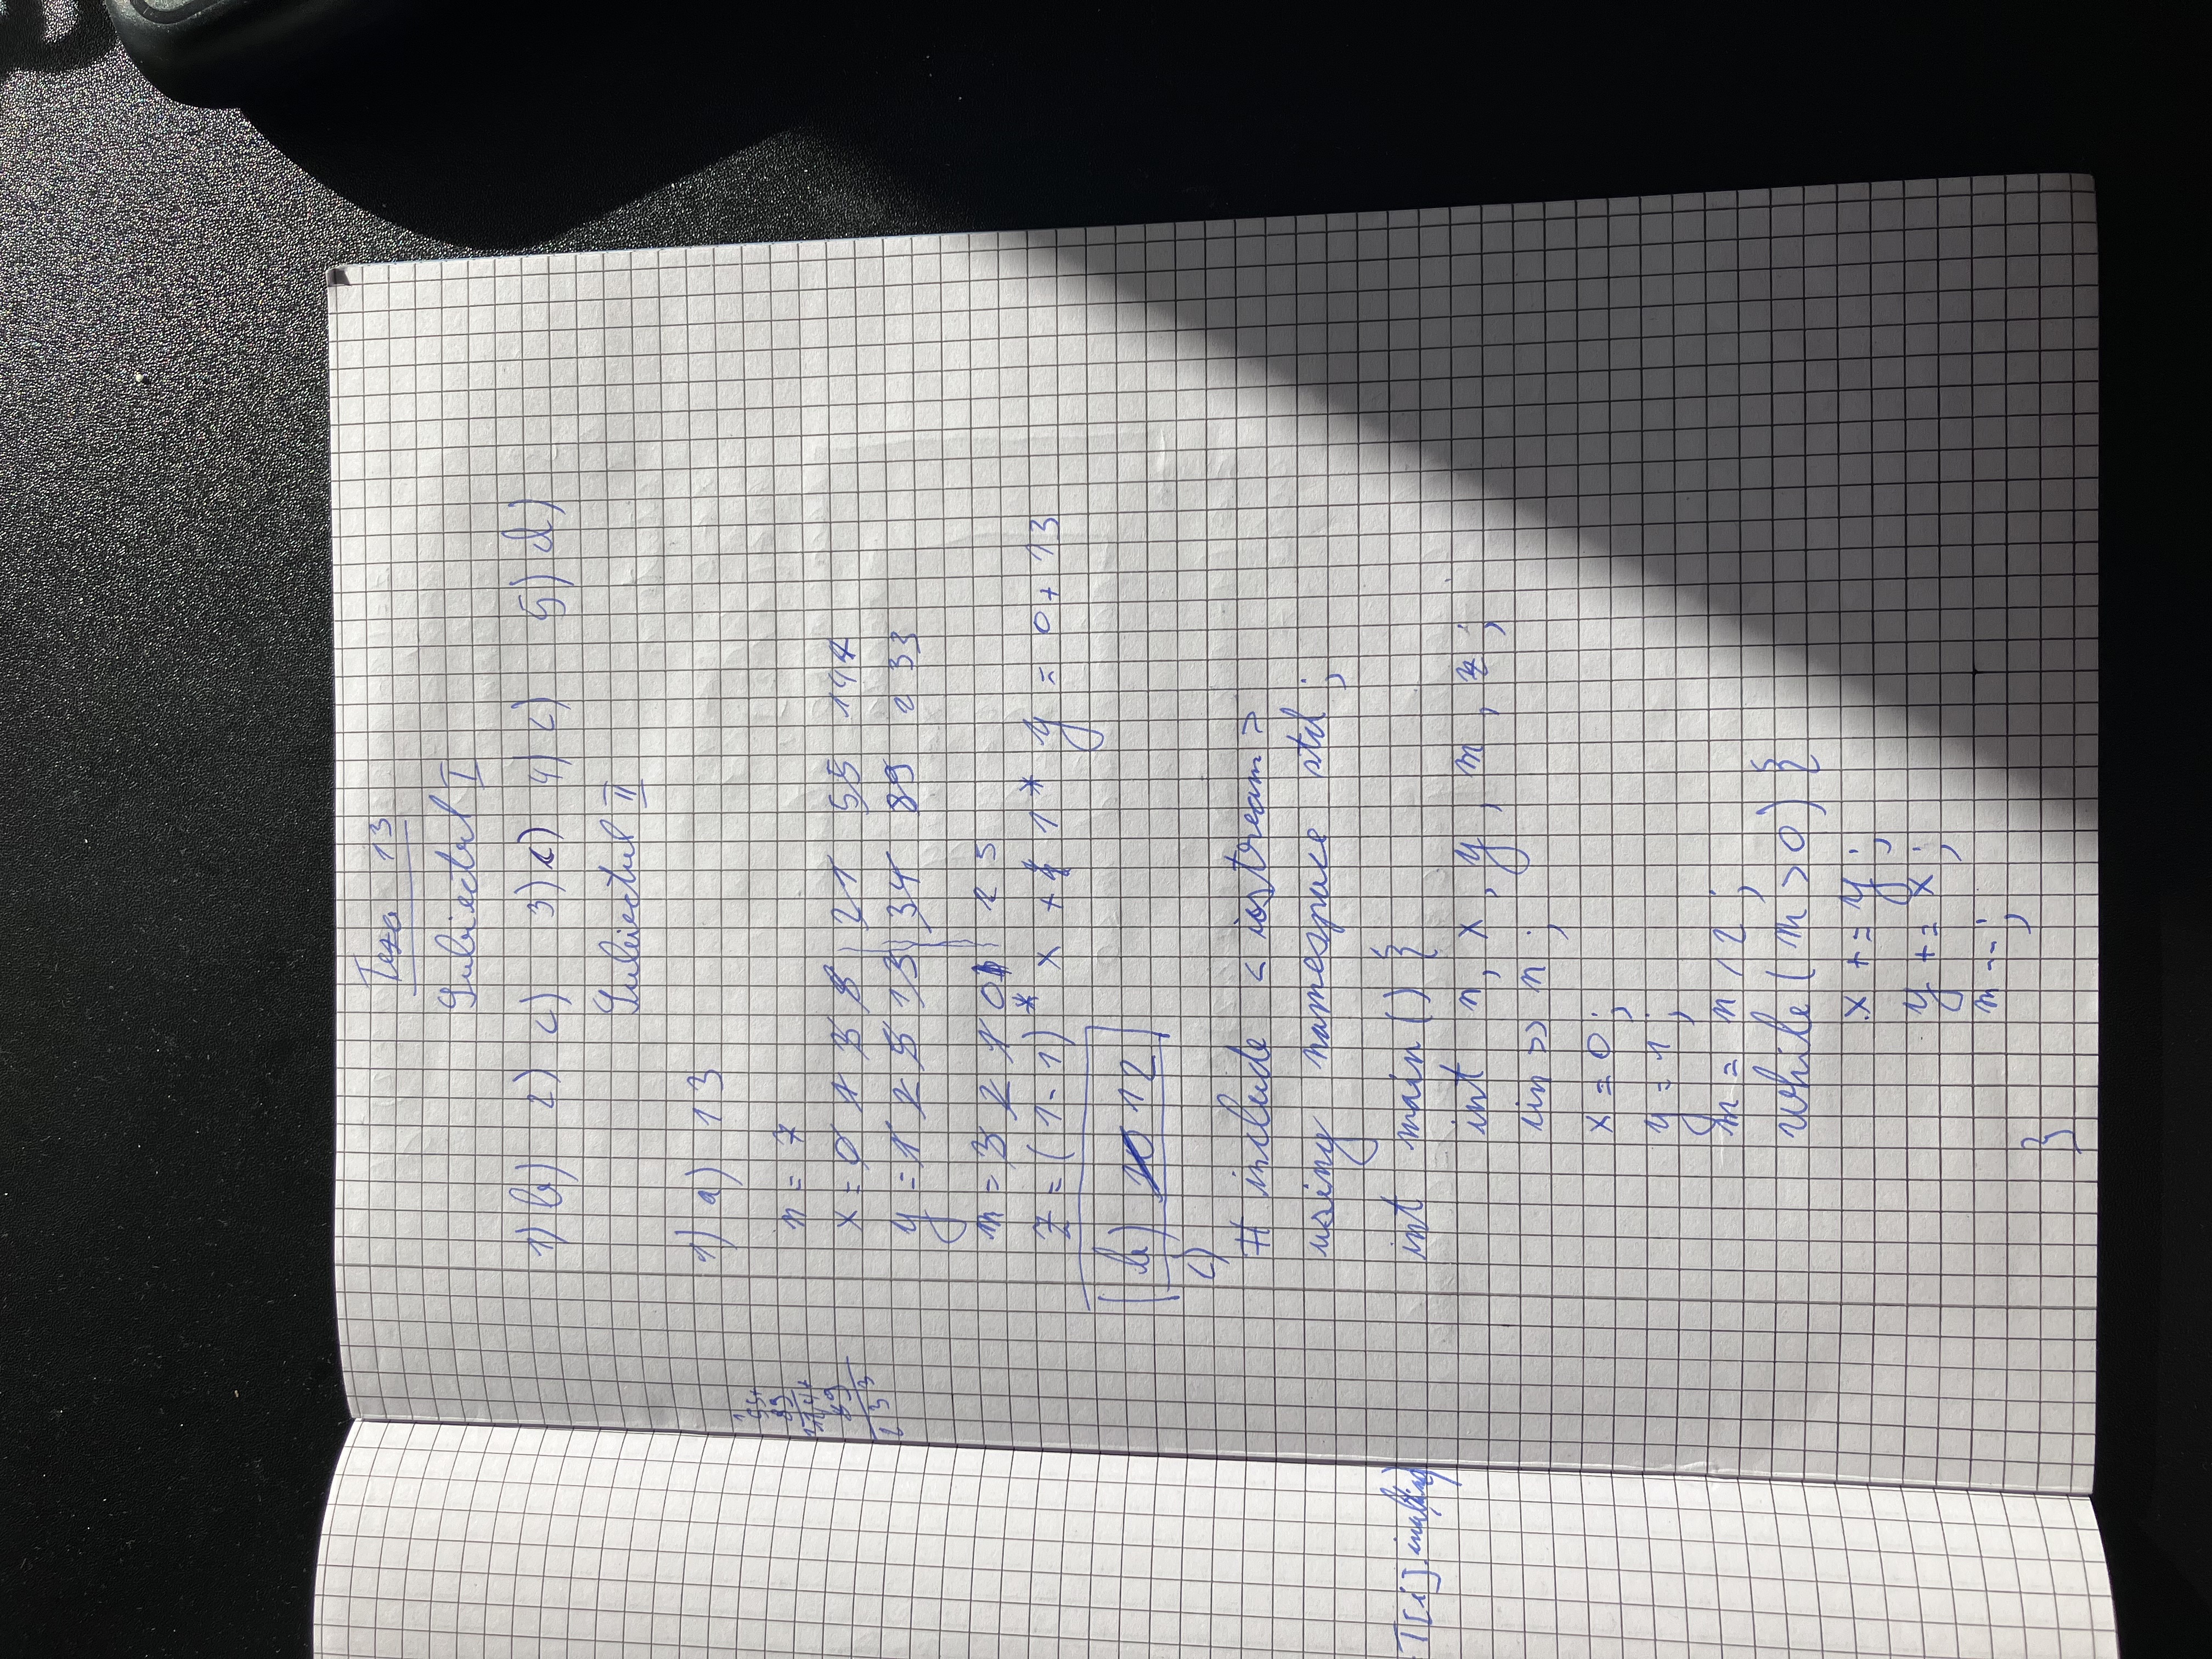 Teza 13
Subiectul I
1) b) 2) c) 3) c) 4) c) 5) d)
Subiectul II
1) a) 13
n = 7
x = 0 1 3 8 21 55 144
y = 1 2 5 13 34 89 233
m = 3 2 1 0
z = (1-1) * x + 1 * y = 0 + 13
b) 10 12
c)
# include < iostream >
using namespace std ;
int main () {
int n, x, y, m, z ;
cin >> n ;
x = 0 ;
y = 1 ;
m = n / 2 ;
while ( m > 0 ) {
x += y ;
y += x ;
m -- ;
}
55+
89
144+
89
233
T[i]